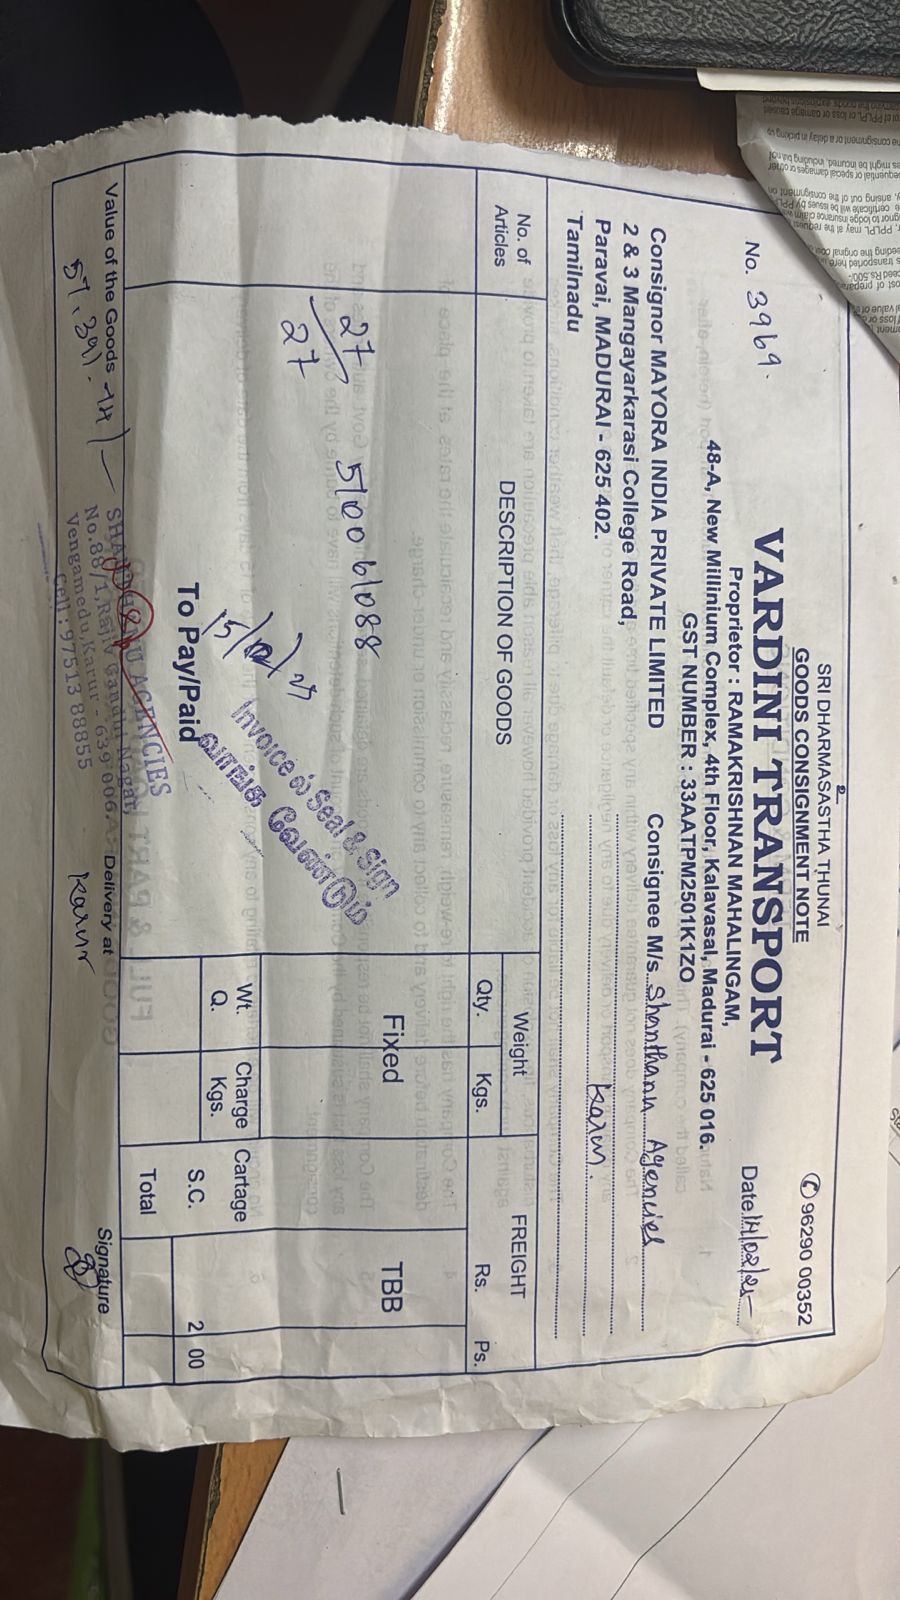 உ
SRI DHARMASASTHA THUNAI
GOODS CONSIGNMENT NOTE
✆ 96290 00352
VARDINI TRANSPORT
Proprietor : RAMAKRISHNAN MAHALINGAM,
48-A, New Millinium Complex, 4th Floor, Kalavasal, Madurai - 625 016.
GST NUMBER : 33AATPM2501K1ZO
No. 3969.
Date 14/02/25
Consignor MAYORA INDIA PRIVATE LIMITED
2 & 3 Mangayarkarasi College Road,
Paravai, MADURAI - 625 402.
Tamilnadu
Consignee M/s Shanthanu Agencies
Karur.
No. of Articles
DESCRIPTION OF GOODS
Weight
Qty. Kgs.
FREIGHT
Rs. Ps.
27/27
5100 61088
15/02/25
Fixed
TBB
Invoice ல் Seal & Sign
வாங்க வேண்டும்
To Pay/Paid
Wt. Q.
Charge Kgs.
Cartage
S.C. 2 00
Total
Value of the Goods
57,391.74/-
SHANTHANU AGENCIES
No.88/1,Rajiv Gandhi Nagar,
Vengamedu,Karur - 639 006.
Cell : 97513 88855
Delivery at Karur
Signature